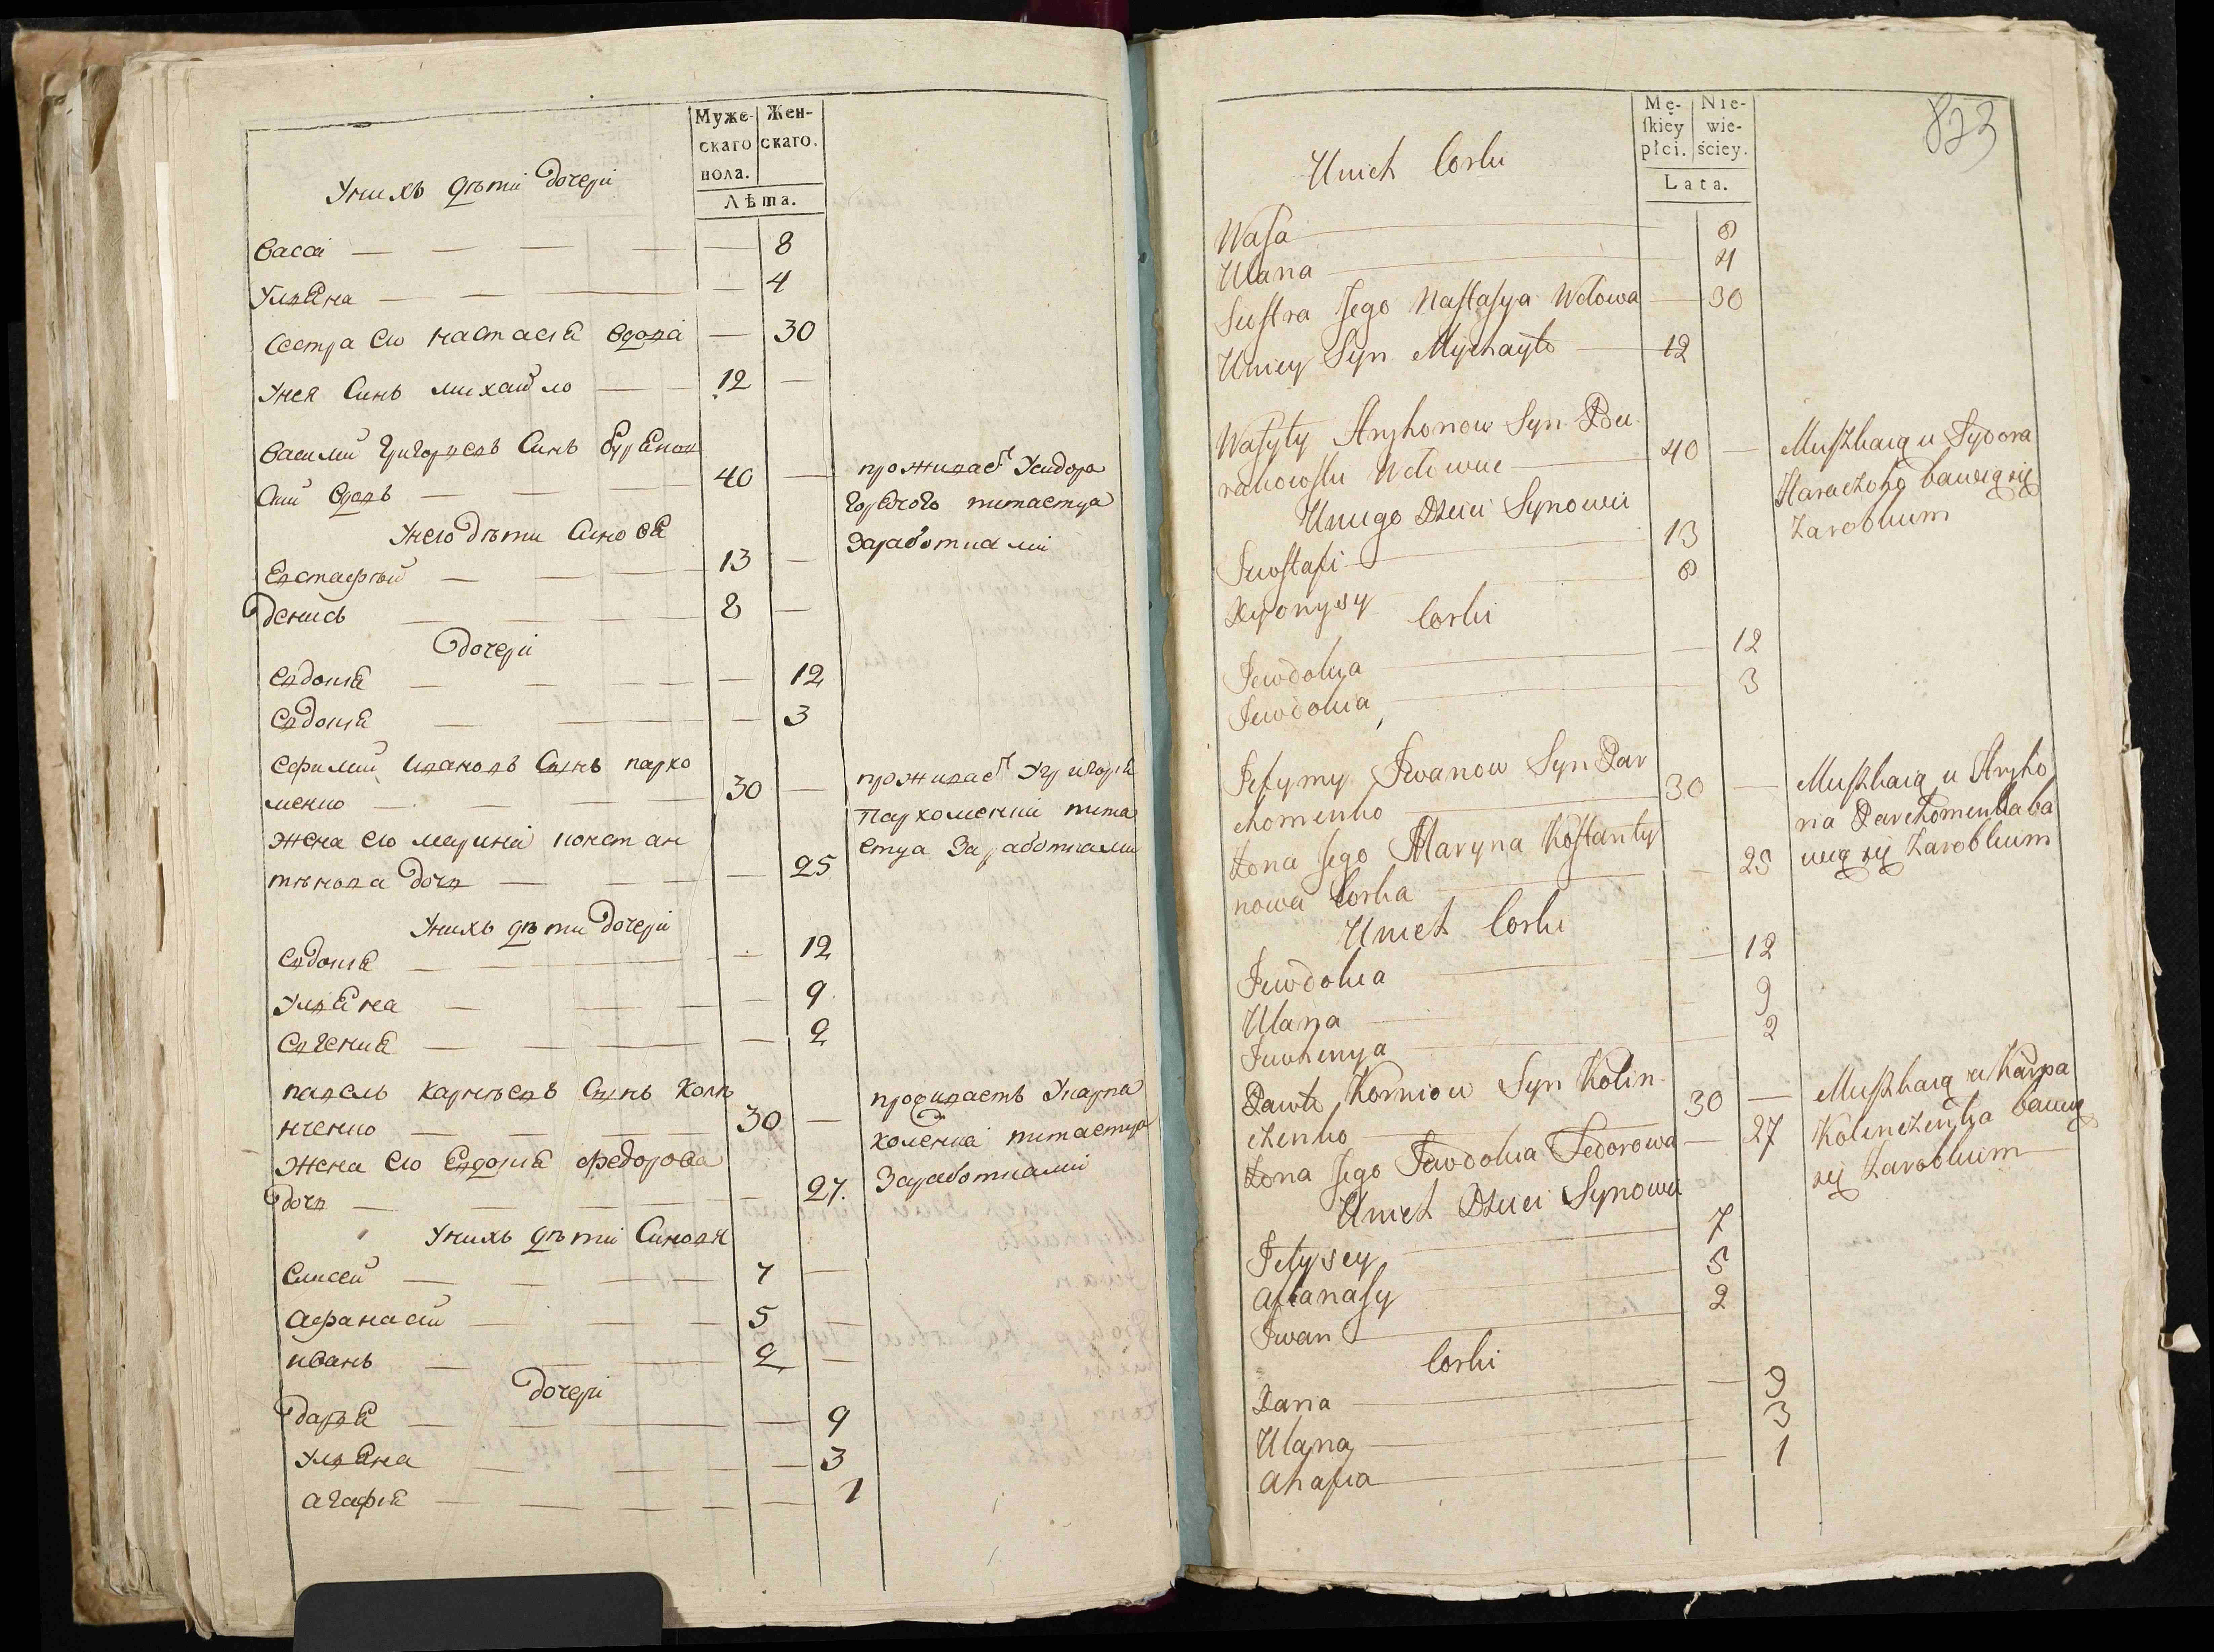 Муже-
скаго
пола.
Жен-
скаго.
Лѣта.
Унихъ дѣти дочери
васса — 8
Улвяна — 4
Сестра его настасія вдова — 30
Унея Синъ михайло — 12
василий григорвевъ Синъ
Сκий вдовъ — 40 —
проживает Усидора
питается
Заработками
Унего дѣти Синовя
Евстафѣй — 13 —
Денисъ — 8 —
Дочери
Евдокія — 12
Евдокія — 3
Ефимий ивановъ Сынъ пархо
менко — 30 —
проживает Угригорія
Пархоменки пита
ется Заработками
жена его марина констан
тѣнова дочв — 25
Унихъ дѣти дочери
Евдокія — 12
Улвяна — 9
Евгения — 2
павелъ карнѣевъ Сынъ Колѣ
нченко — 30 —
Укарпа
питается
Заработками
жена его Евдокія федорова
дочв — 27.
Унихъ дѣти Синовя
Елисей — 7 —
Афанасій — 5 —
иванъ — 2 —
Дочери
Дарвя — 9
Улвяна — 3
Агафія — 1
823
Mę-
skiey
płci.
Nie-
wie-
ściey.
Lata.
Unich Corki
Wasa — 8
Ulana — 4
Siostra Jego Nastasya Wdowa — 30
Uniey Syn Mychayło — 12
Wasyly Hryhorow Syn Bu
rakowski Wdowiec — 40 —
Mięszkaią u Sydora
Haraczoho bawią się
Zarobkiem
Uniego Dzieci Synowie
Jewstafi — 13
Dyonysy — 8
Corki
Jewdokia — 12
Jewdokia — 3
Jefymy Iwanow Syn Par
chomenko — 30 —
Mięszkaią u Hryho
ria Parchomenka ba
wią się Zarobkiem
Zona Jego Maryna Kostanty
nowa Corka — 25
Unich Corki
Jewdokia — 12
Ulana — 9
Jewhenya — 2
Pawło Korniow Syn Kolin
czenko — 30 —
Mięszkaią u Karpa
Kolenczenka bawią
się Zarobkiem
Zona Jego Jewdokia Fedorowa — 27
Unich Dzieci Synowie
Jełysey — 7
Afanasy — 5
Iwan — 2
Corki
Daria — 9
Ulana — 3
Ahafia — 1